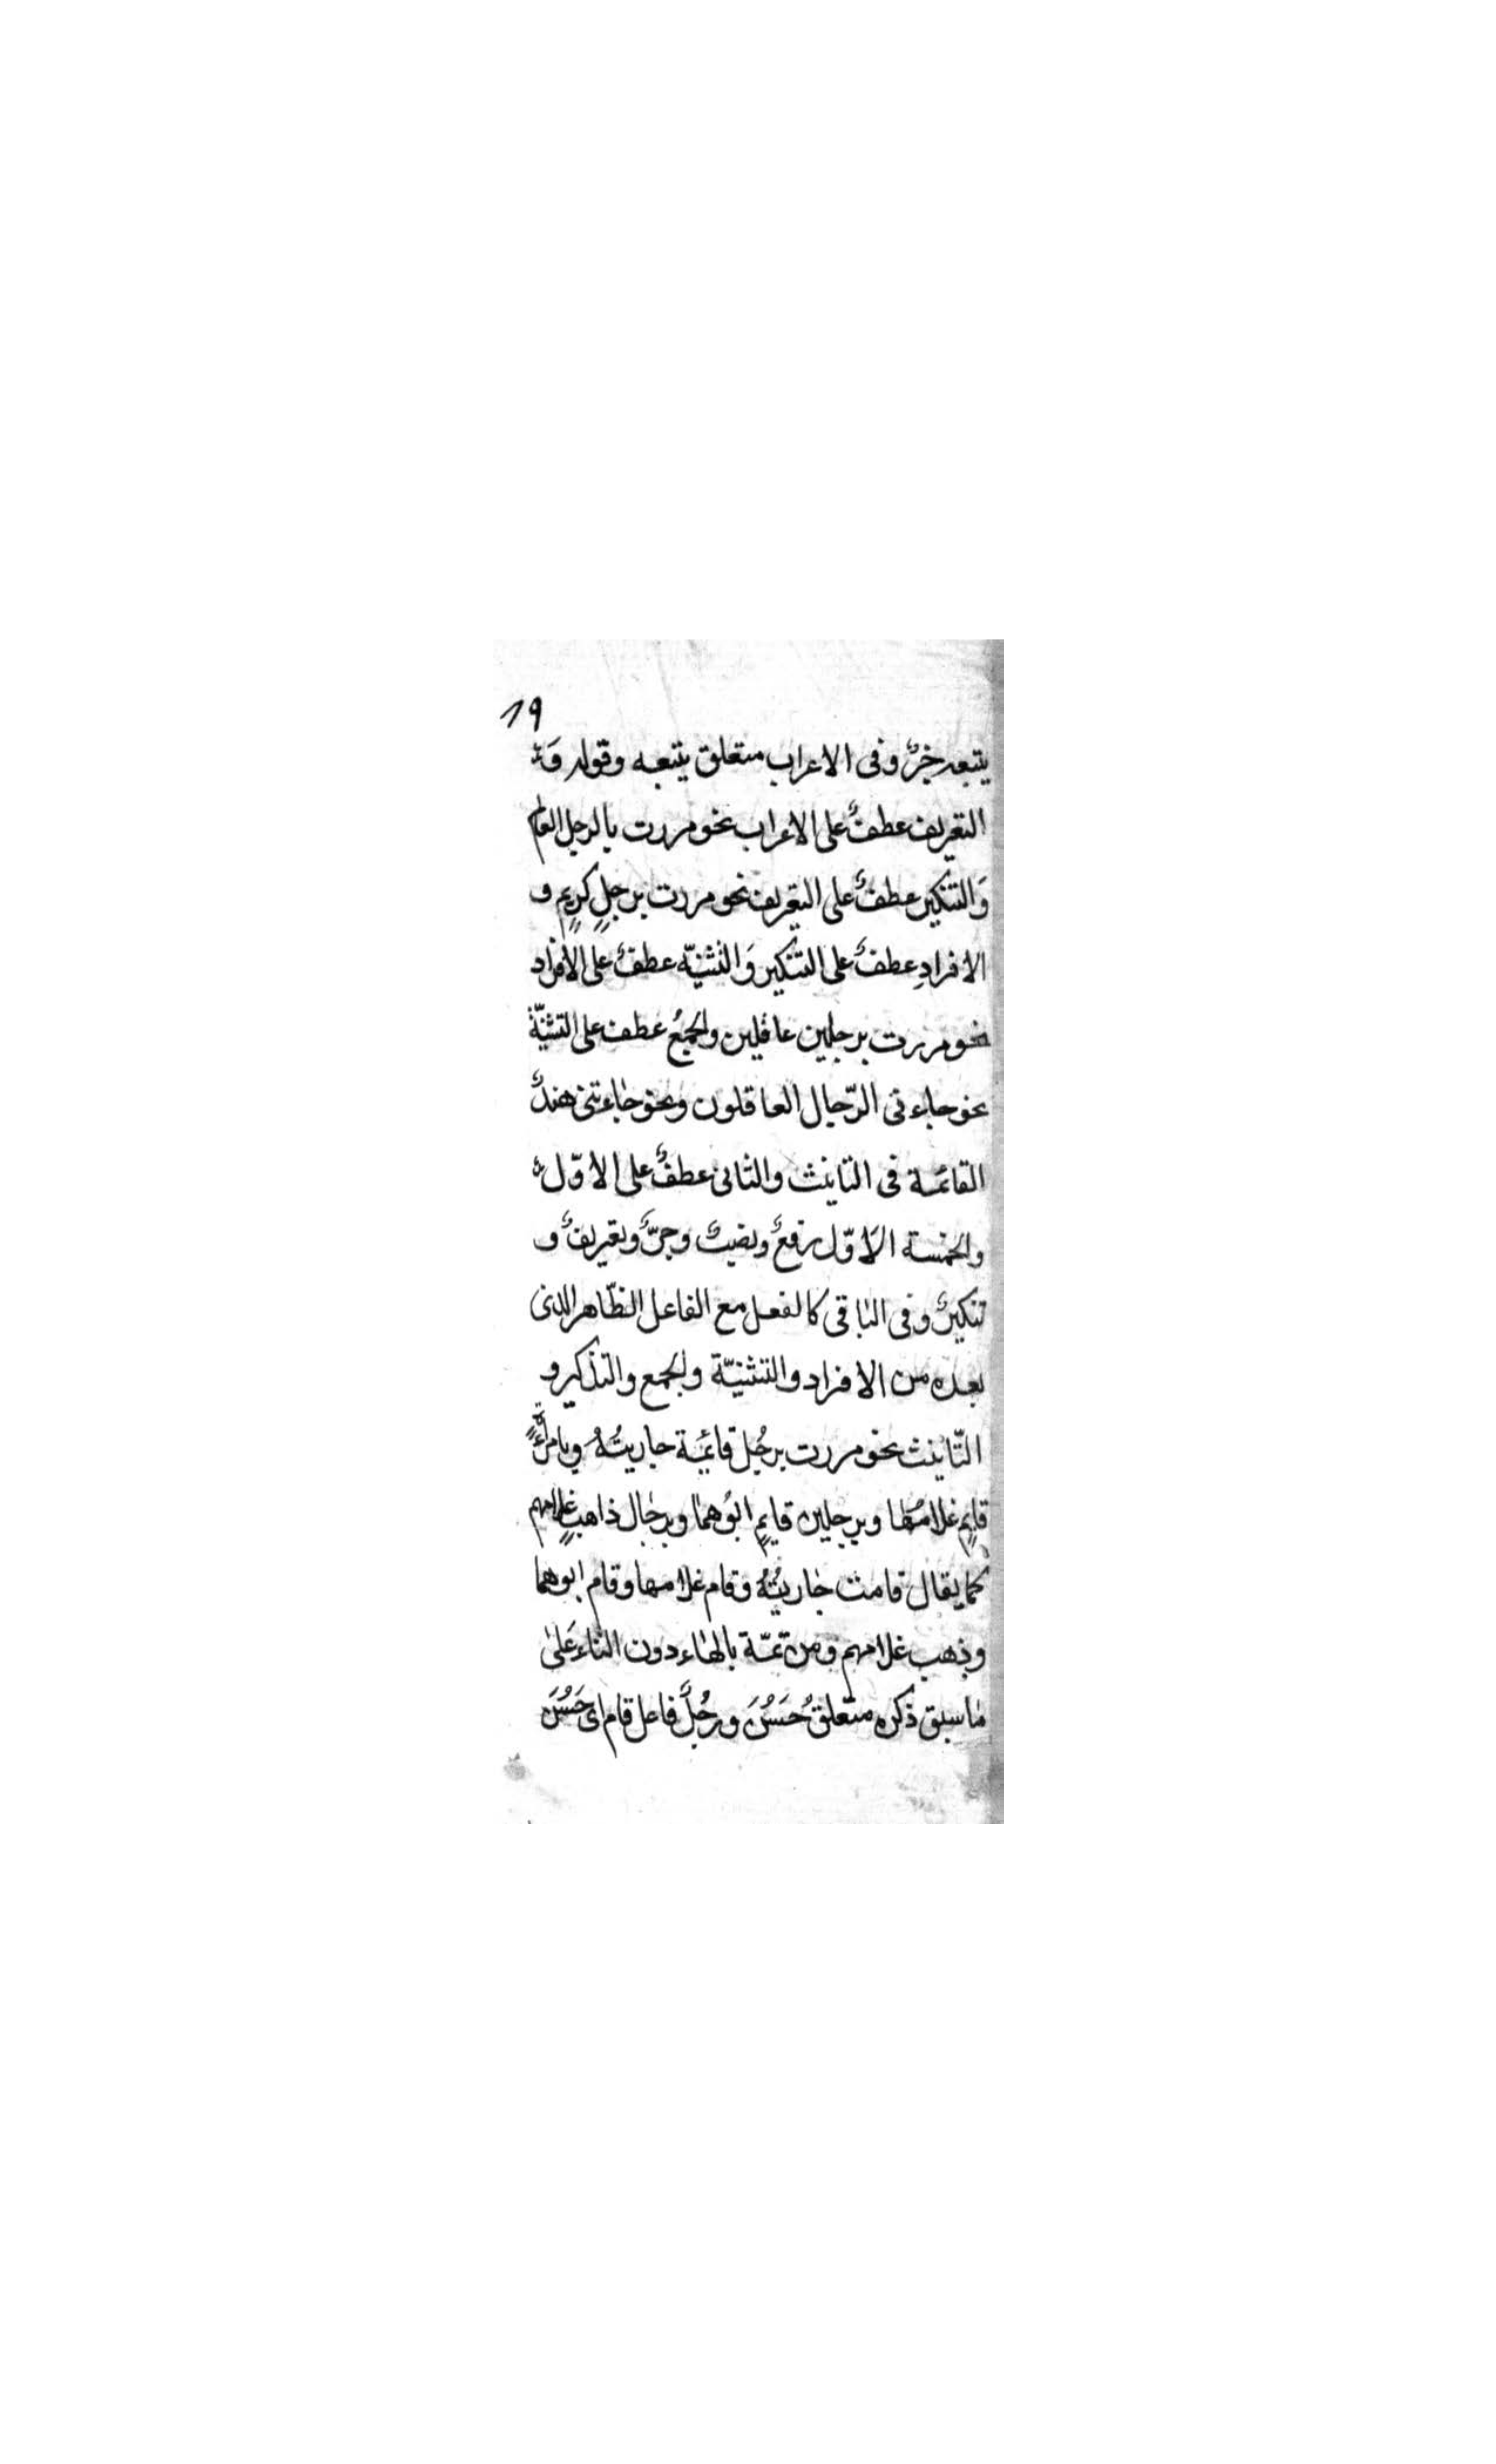 19
يتبعه خبرٌ وفى الاعراب متعلق يتبعه وقوله وَ
التعريف عطفٌ على الاعراب نحو مررت بالرجل العالم
وَالتنكير عطفٌ على التعريف نحو مررت برجلٍ كريمٍ و
الافرادِ عطفٌ على التنكير وَالتثنيّه عطفٌ على الافراد
نحو مررت برجلين عاقلين والجمعُ عطف على التثنيّة
نحو جاءنى الرّجال العاقلون ونحو جاءتنى هندٌ
القائمة فى التانيث والثانى عطفٌ على الاوّل
والخمسة الاَوّل رفعٌ ونصبٌ وجرٌّ وتعريفٌ و
تنكيرٌ وفى الباقى كالفعل مع الفاعل الظّاهر الذى
بعده من الافراد والتثنيّة والجمع والتذكير و
التّانيث نحو مررت برجُل قائمة جاريتُهُ وبامرأةٍ
قايمٍ غلامُها وبرجلين قايمٍ ابوُهما وبرجال ذاهبٍ غلامهم
كما يقال قامت جاريتُهُ وقام غلامها وقام ابوهما
وذهب غلامهم ومن ثمّة بالهاء دون التاء عَلى
ما سبق ذكره متعلقُ حَسُنَ ورجُلٌ فاعل قام اى حَسُنَ